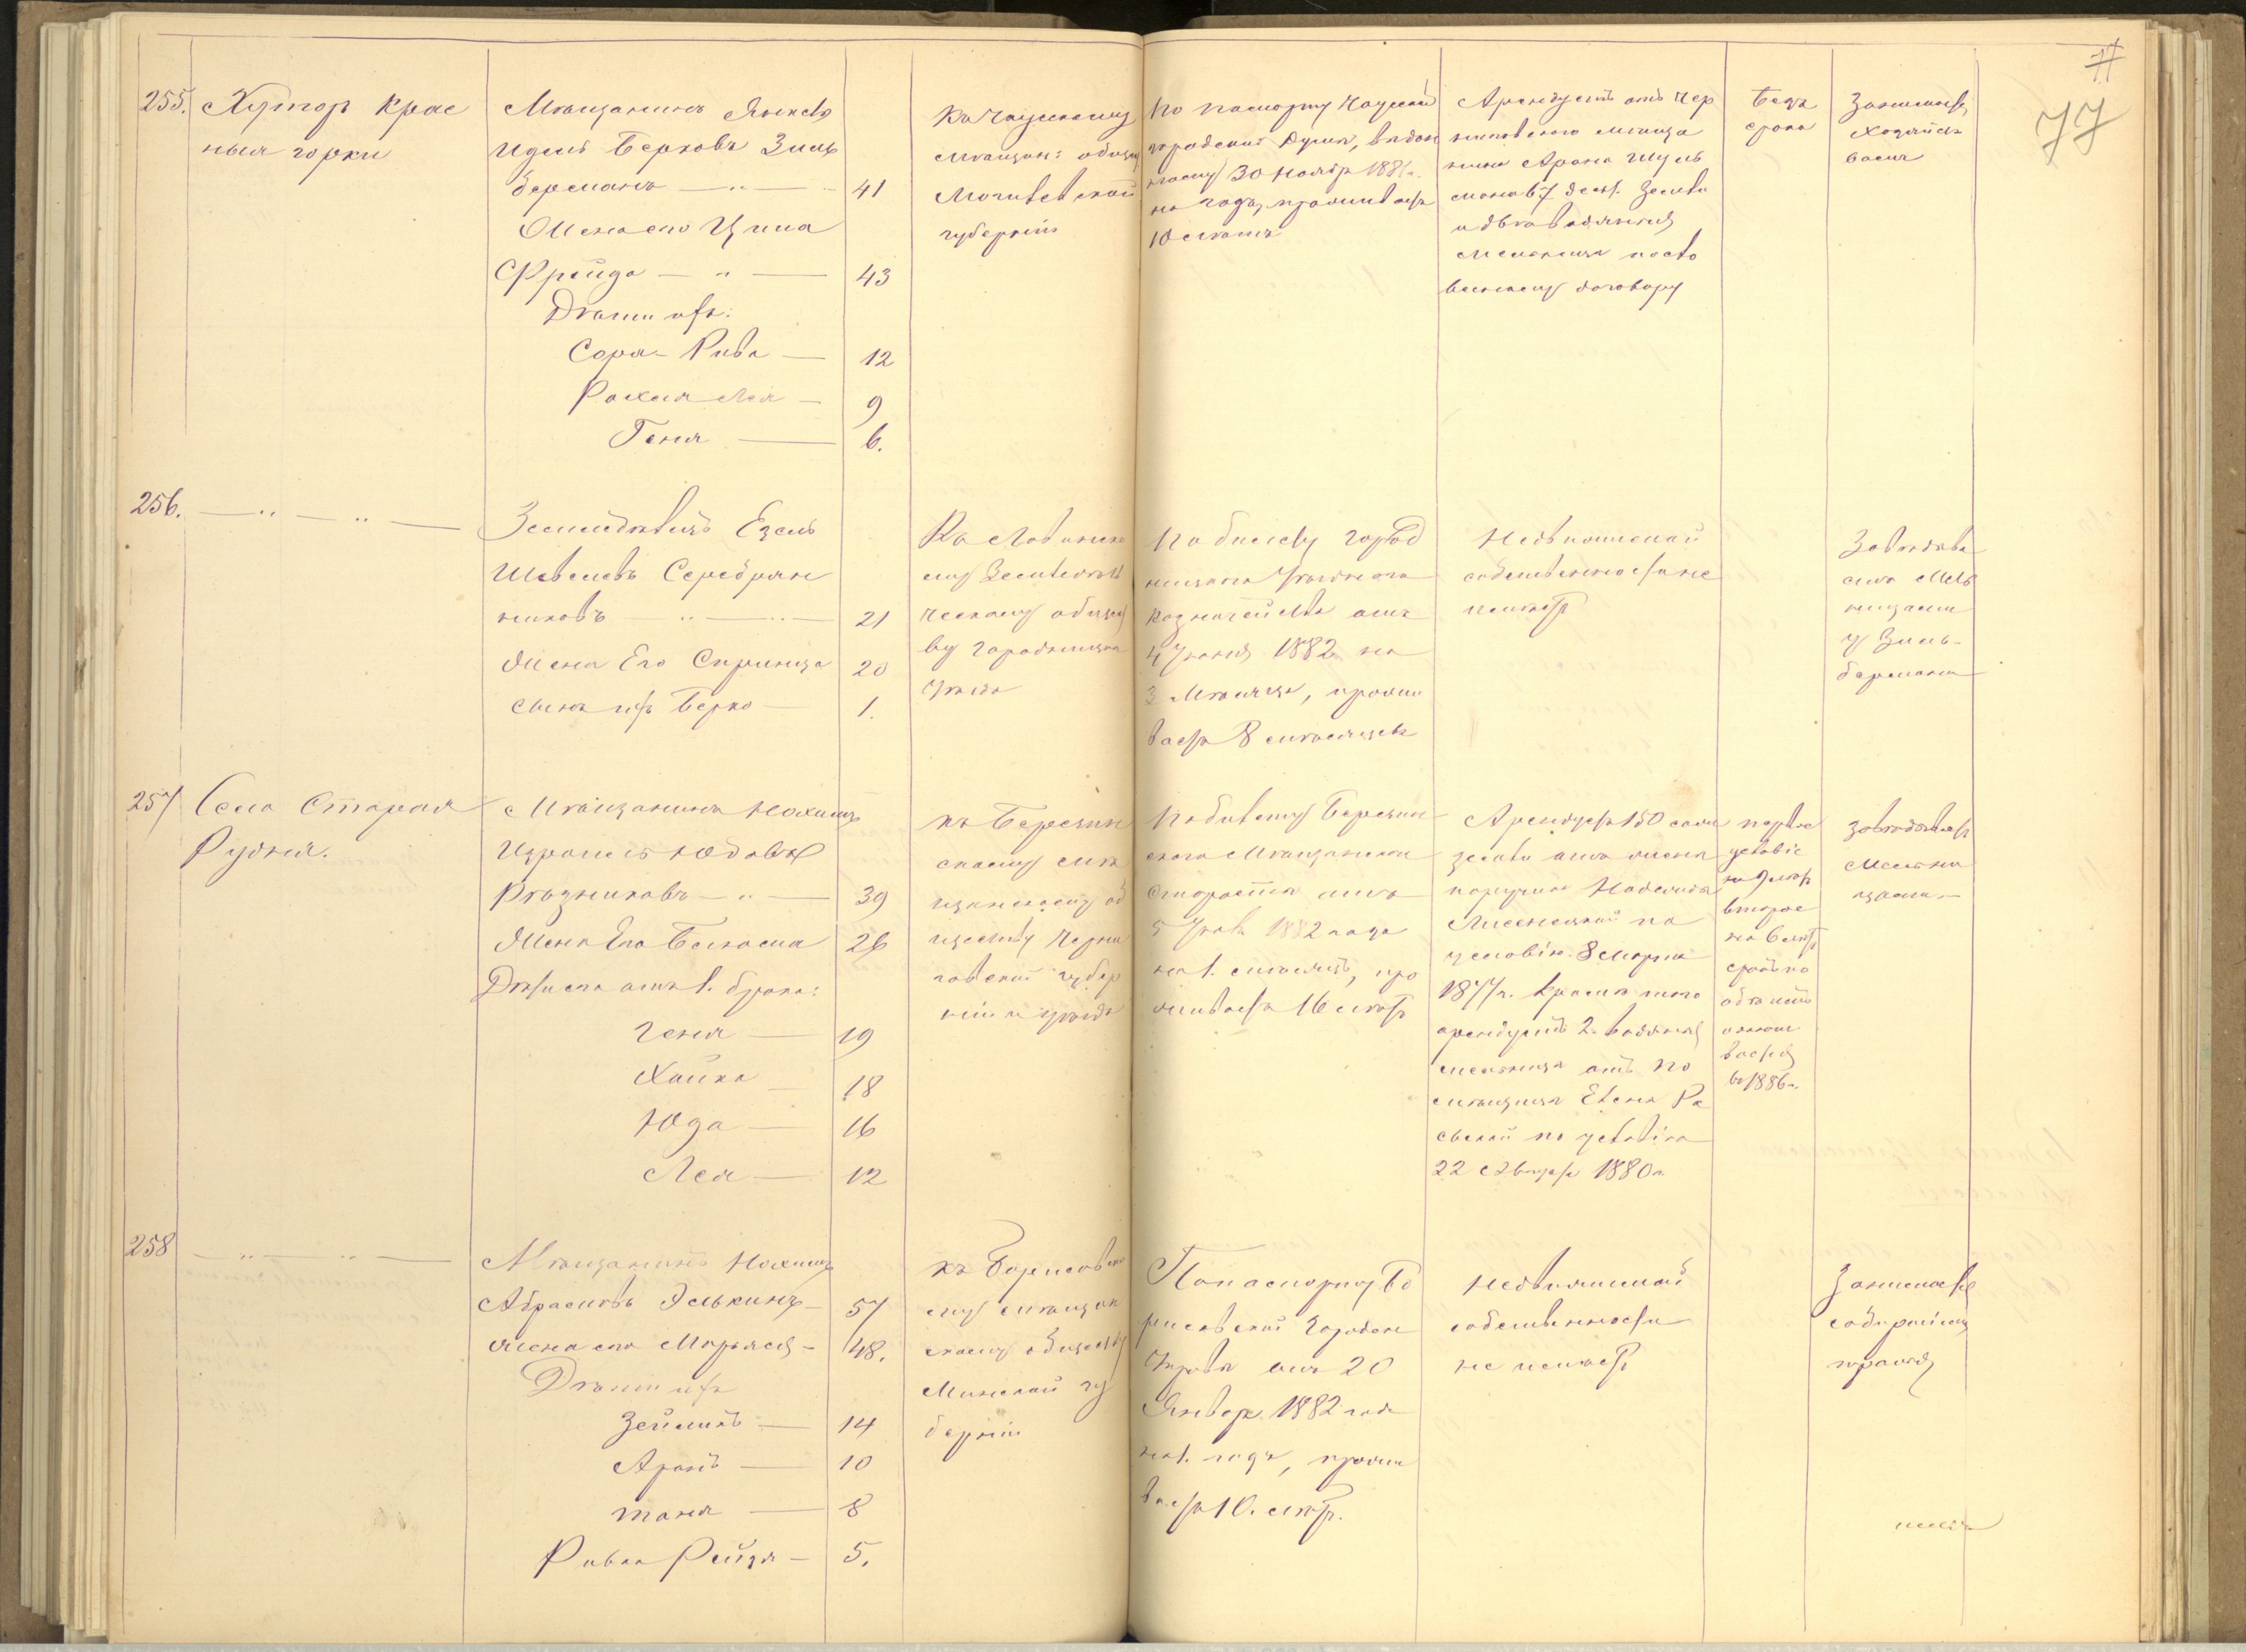 77
77
255. Хуторъ Крас
ныя горки
Мѣщанинъ Янкель
Идель Берковъ Зиль
берманъ — " — 41
Жена его Ципа
Фрейда — " — 43
Дѣти ихъ:
Сора-Рива — 12
Рохля Лея — 9
Геня — 6.
Къ Чаусскому
мѣщан: общес
Могилевской
губерніи
По паспорту Чаусской
городской Думы, выдан
ному 30 Ноября 1881 г.
на годъ, проживаетъ
10 лѣтъ
Арендуетъ отъ Чер
ниговского мѣща
нина Арона Шуль
мана 67 десят. Земли
и двѣ водяныя
мельницы по сло
весному договору
Безъ
срока
Занимается
Хозяйст
вомъ
256. — " — " —
Земледѣлецъ Езель
Шевелевъ Серебрян
никовъ — " — " — 21
Жена Его Спринца 20
Сынъ ихъ Берко — 1.
земледѣль
ческому общест
ву Городницкаго
Уѣзда
По билету Город
ницкаго Уѣзднаго
Казначейства отъ
4 Іюня 1882 на
3 Мѣсяца, прожи
ваетъ 8 мѣсяцевъ
Недвижимой
собственности не
имѣетъ
Завѣдыва
етъ Мель
ницами
у Зиль-
бермана
257 Село Старая
Рудня.
Мѣщанинъ Нохимъ
Израиль Юдовъ
Рѣзниковъ — " — 39
Жена Его Бейла 26
Дѣти его отъ 1. брака:
Геня — 19
Хайка — 18
Юда — 16
Лея — 12
къ Березин
скому мѣ
щанскому об
ществу Черни
говской губер
ніи и уѣзда
По билету Березин
ского Мѣщанского
Старосты отъ
5 1882 года
на 1. мѣсяцъ, про
живаетъ 16 лѣтъ
Арендуетъ 150 саж
земли отъ жены
поручика Надежды
Лисенецкой по
условію 8 марта
1877 г. Кромѣ того
арендуетъ 2. водяныя
мельницы отъ По
мѣщицы Елены Ра
евской по условію
22 1880 г.
первое
условіе
на 9 лѣтъ
второе
на 6 лѣтъ
срокъ по
обѣимъ
въ 1886 г.
завѣдываетъ
Мельни
цами.
258 — " — " —
Мѣщанинъ Нохимъ
Абрамовъ Элькинъ — 57
жена его Марьяся — 48.
Дѣти ихъ
Зеймикъ — 14
Аронъ — 10
Таня — 8
Ривка Рейзя — 5.
къ Борисовско
му мѣщан
скому обществу
Минской гу
берніи
По паспорту Бо
рисовской Городск
Управы отъ 20
Января 1882 года
на 1. годъ, прожи
ваетъ 10. лѣтъ.
Недвижимой
собственности
не имѣетъ
Занимается